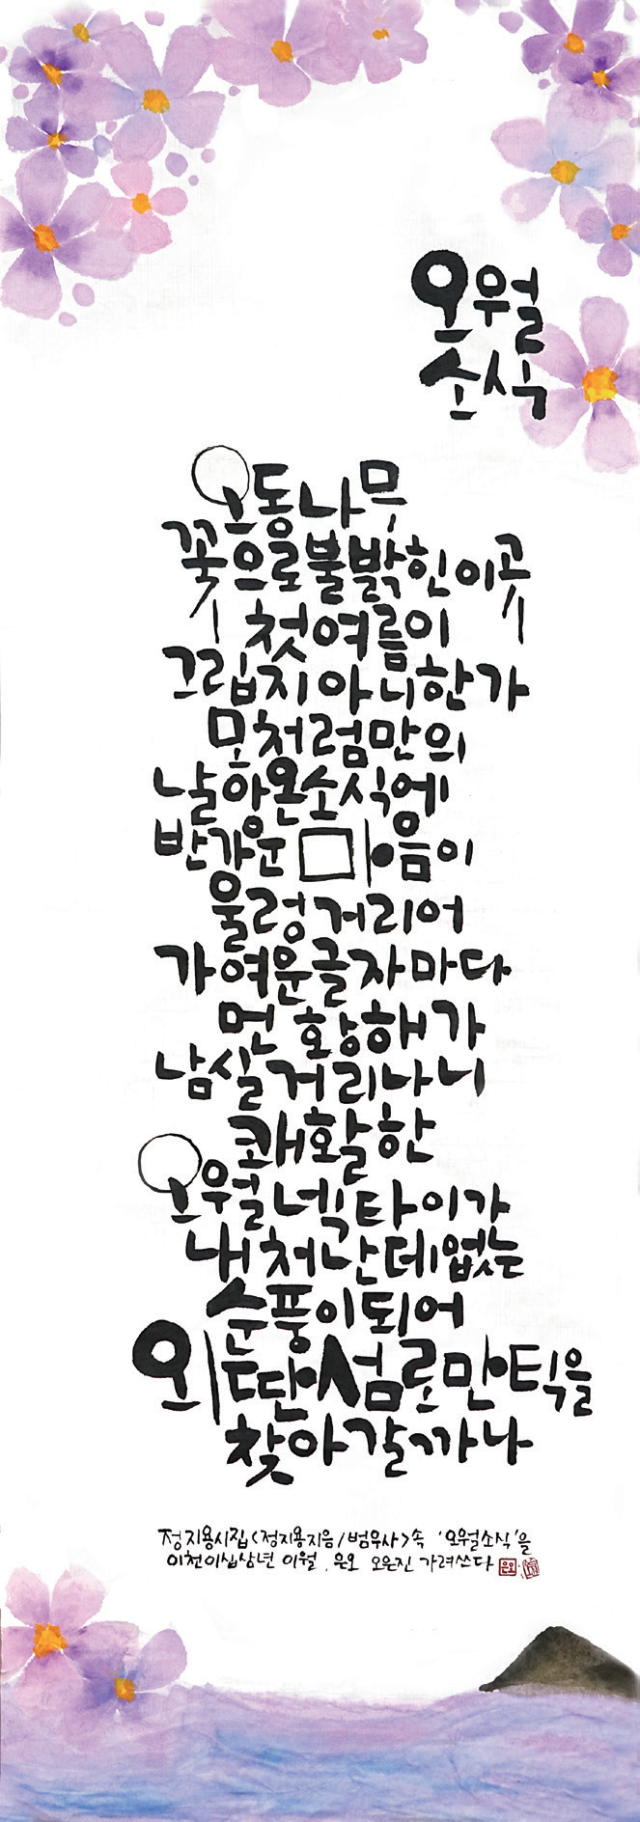 오월
소식
오동나무
꽃으로불밝힌이곳
첫여름이
그립지아니한가
모처럼만의
날아온소식에
반가운마음이
울렁거리어
가여운글자마다
먼황해가
남실거리나니
쾌활한
오월넥타이가
내처난데없는
순풍이되어
외딴섬로만틱을
찾아갈까나
정지용시집<정지용지음/범우사>속 '오월소식'을
이천이십삼년 이월. 은오 오은진 가려쓰다
은오